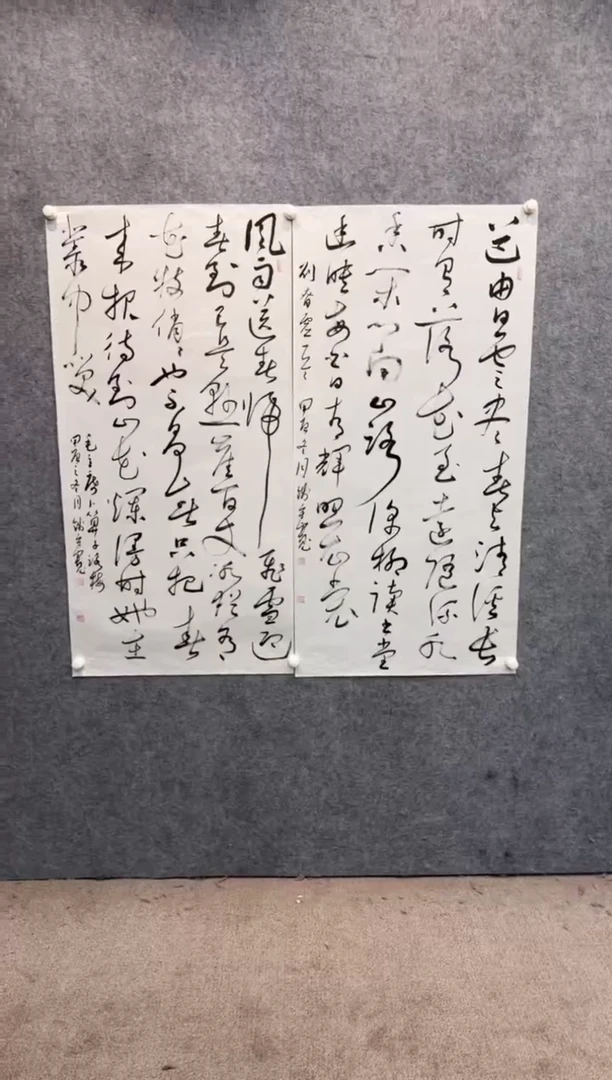 道由白云尽春与清溪长
时有落花至远随流水
香闲门向山路深柳读书堂
幽映每白日清辉照衣裳
刘眘虚 甲辰冬月
风雨送春归飞雪迎
春到已是悬崖百丈冰犹有
花枝俏〻也不争春只把春
来报待到山花烂漫时她在
丛中笑
毛主席卜算子咏梅
甲辰之冬月